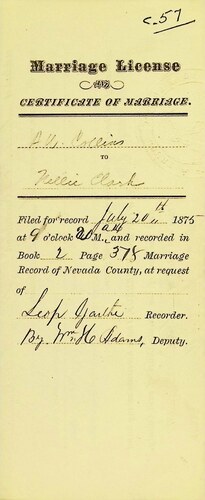 c.57
Marriage License
AND
CERTIFICATE OF MARRIAGE.
Collins
TO
Nellie Clark
Filed for record July 20th 1875
at 9 o'clock A M., and recorded in
Book 2 Page 378 Marriage
Record of Nevada County, at request
of
Leop Garthe Recorder.
By Wm H Adams, Deputy.